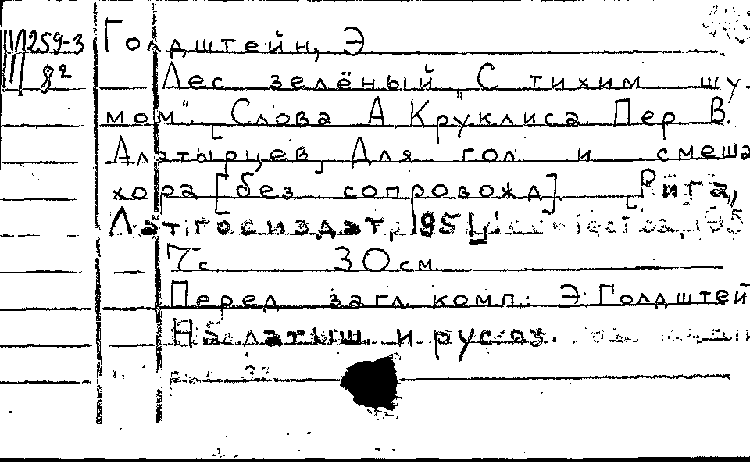 III 259-3 Голдштейн, Э
82 Лес зелёный „С тихим шу-
мом". Слова А Круклиса Пер В.
Алатырцев, Для гол и смеша
хора [без сопровожд] [Рига,
Латгосиздат, 1951]
7с 30см
Перед загл комп.: Э Голдштей
На латыш. и русяз.